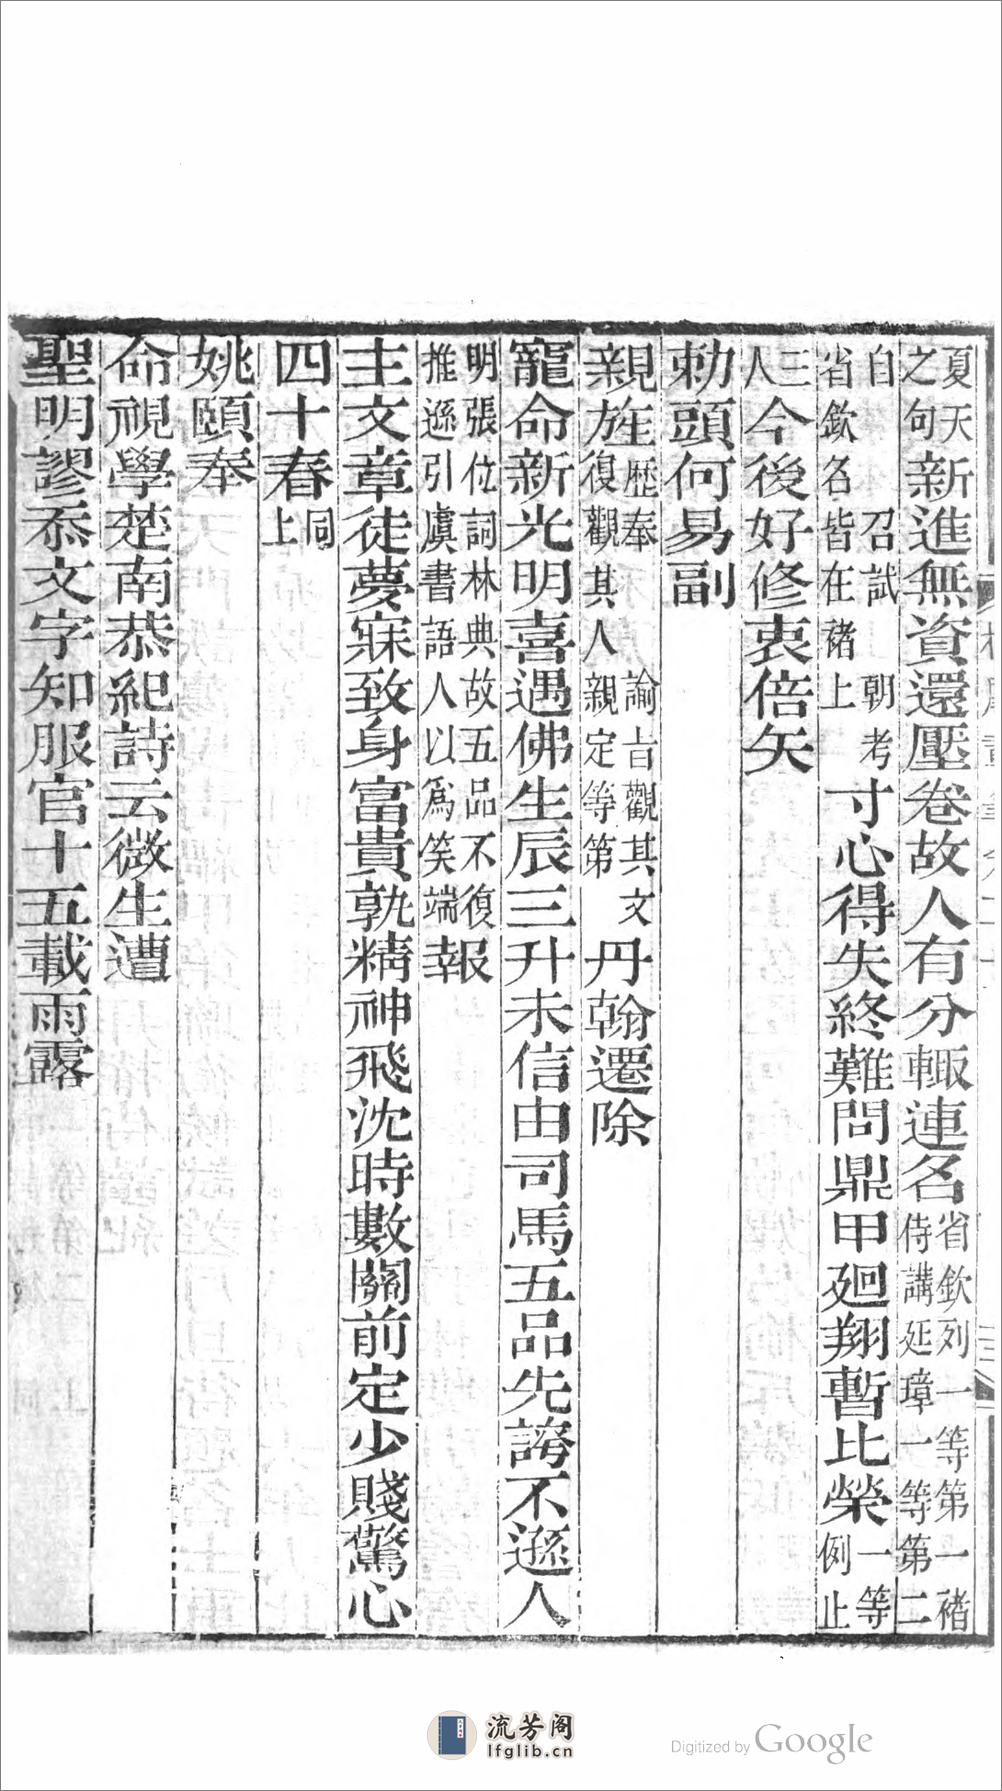 夏天之句新進無資還壓卷故人有分輙連名省欽列一等第一褚侍講延璋一等第二
自召試朝考省欽名皆在褚上寸心得失終難問鼎甲廻翔暫比榮一等例止
三人今後好修衷倍矢
勅頭何易副
親旌歴奉諭旨觀其文復觀其人親定等第丹翰遷除
寵命新光明喜遇佛生辰三升未信由司馬五品先誇不遜人
明張位詞林典故五品不復推遜引虞書語人以為笑端報
主文章徒夢寐致身富貴孰精神飛沈時數關前定少賤驚心
四十春同上
姚頤奉
命視學楚南恭紀詩云微生遭
聖明謬忝文字知服官十五載雨露
流芳阁
lfglib.cn
Digitized by Google